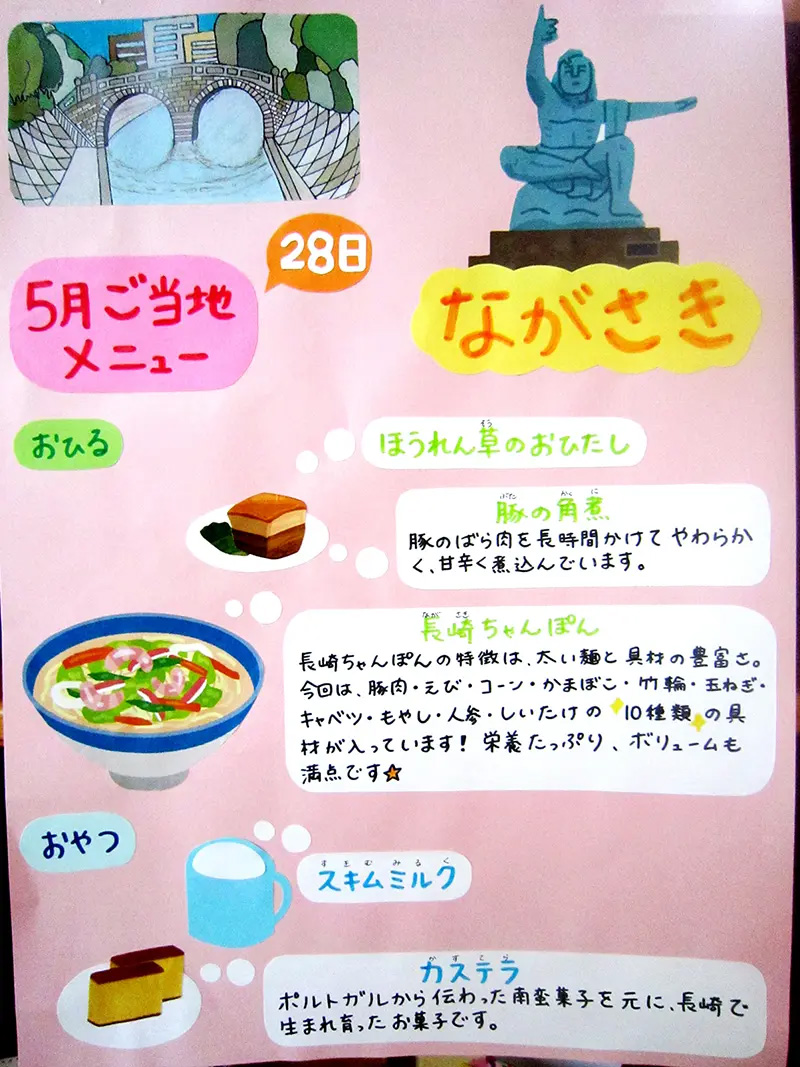 28日
5月ご当地
メニュー
ながさき
おひる
そう
ほうれん草のおひたし
ぶた かく に
豚の角煮
豚のばら肉を長時間かけて やわらか
く、甘辛く煮込んでいます。
なが さき
長崎ちゃんぽん
長崎ちゃんぽんの特徴は、太い麺と具材の豊富さ。
今回は、豚肉・えび・コーン・かまぼこ・竹輪・玉ねぎ・
キャベツ・もやし・人参・しいたけの 10種類 の具
材が入っています! 栄養たっぷり、ボリュームも
満点です
おやつ
すきむみるく
スキムミルク
かすてら
カステラ
ポルトガルから伝わった南蛮菓子を元に、長崎で
生まれ育ったお菓子です。